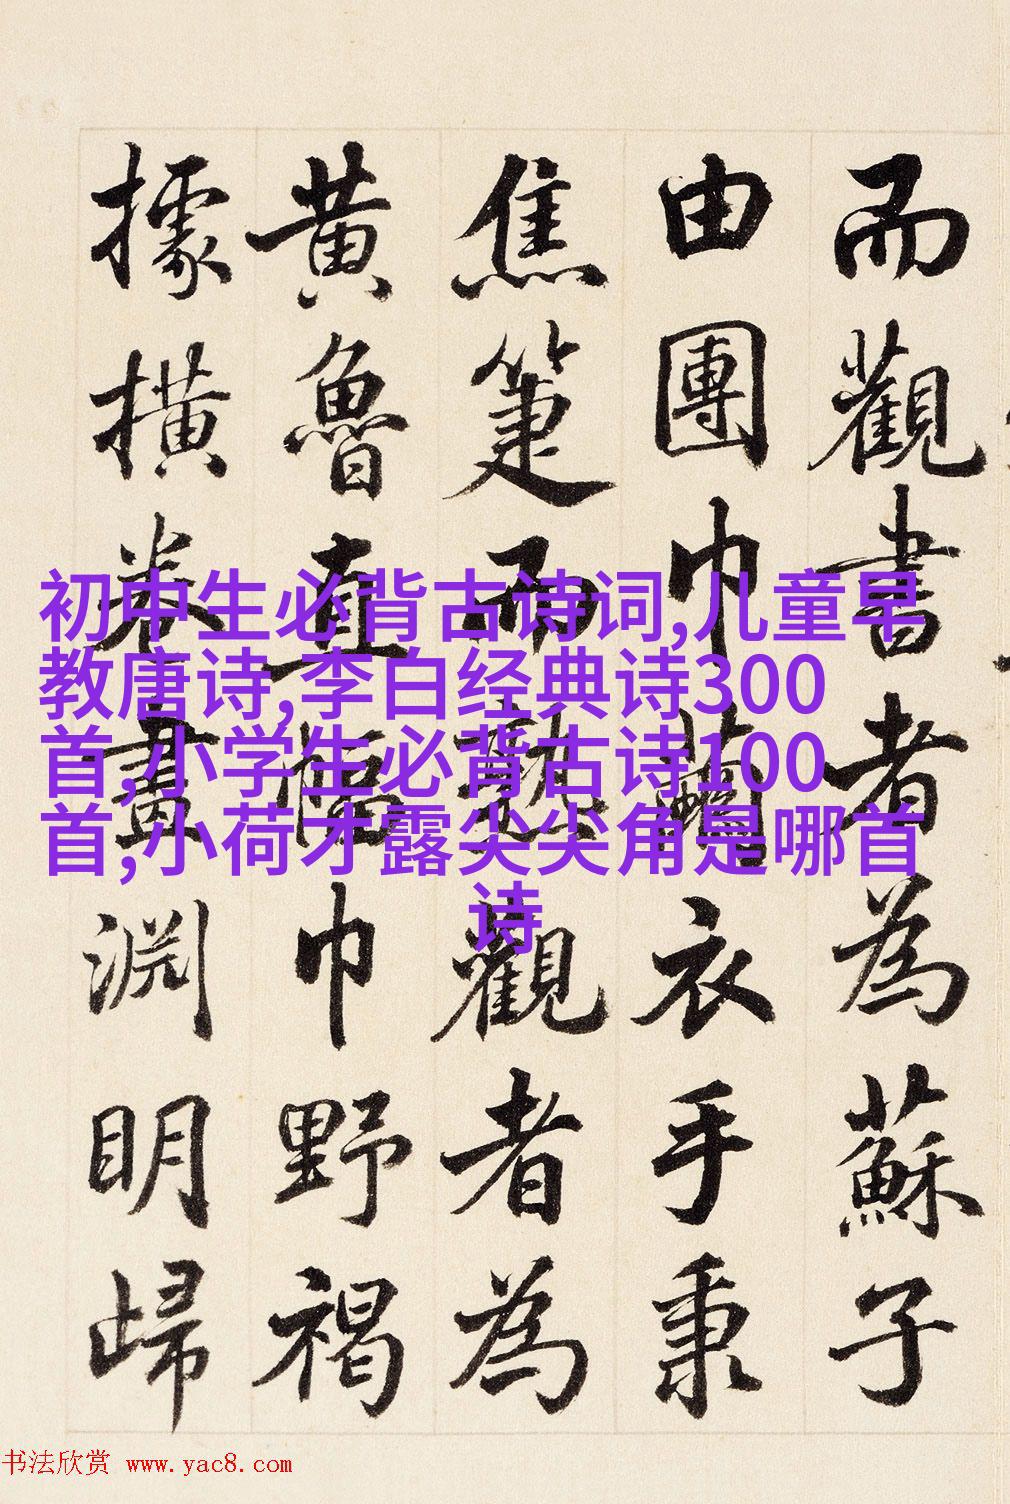 而觀書者為蘇子
由團巾繭衣手秉
焦箑而熟觀者為
黃魯直幅巾野褐
據橫卷畫淵明歸
初中生必背古诗词,儿童早
教唐诗,李白经典诗300
首,小学生必背古诗100
首,小荷才露尖尖角是哪首
诗
书法欣赏 www.yac8.com